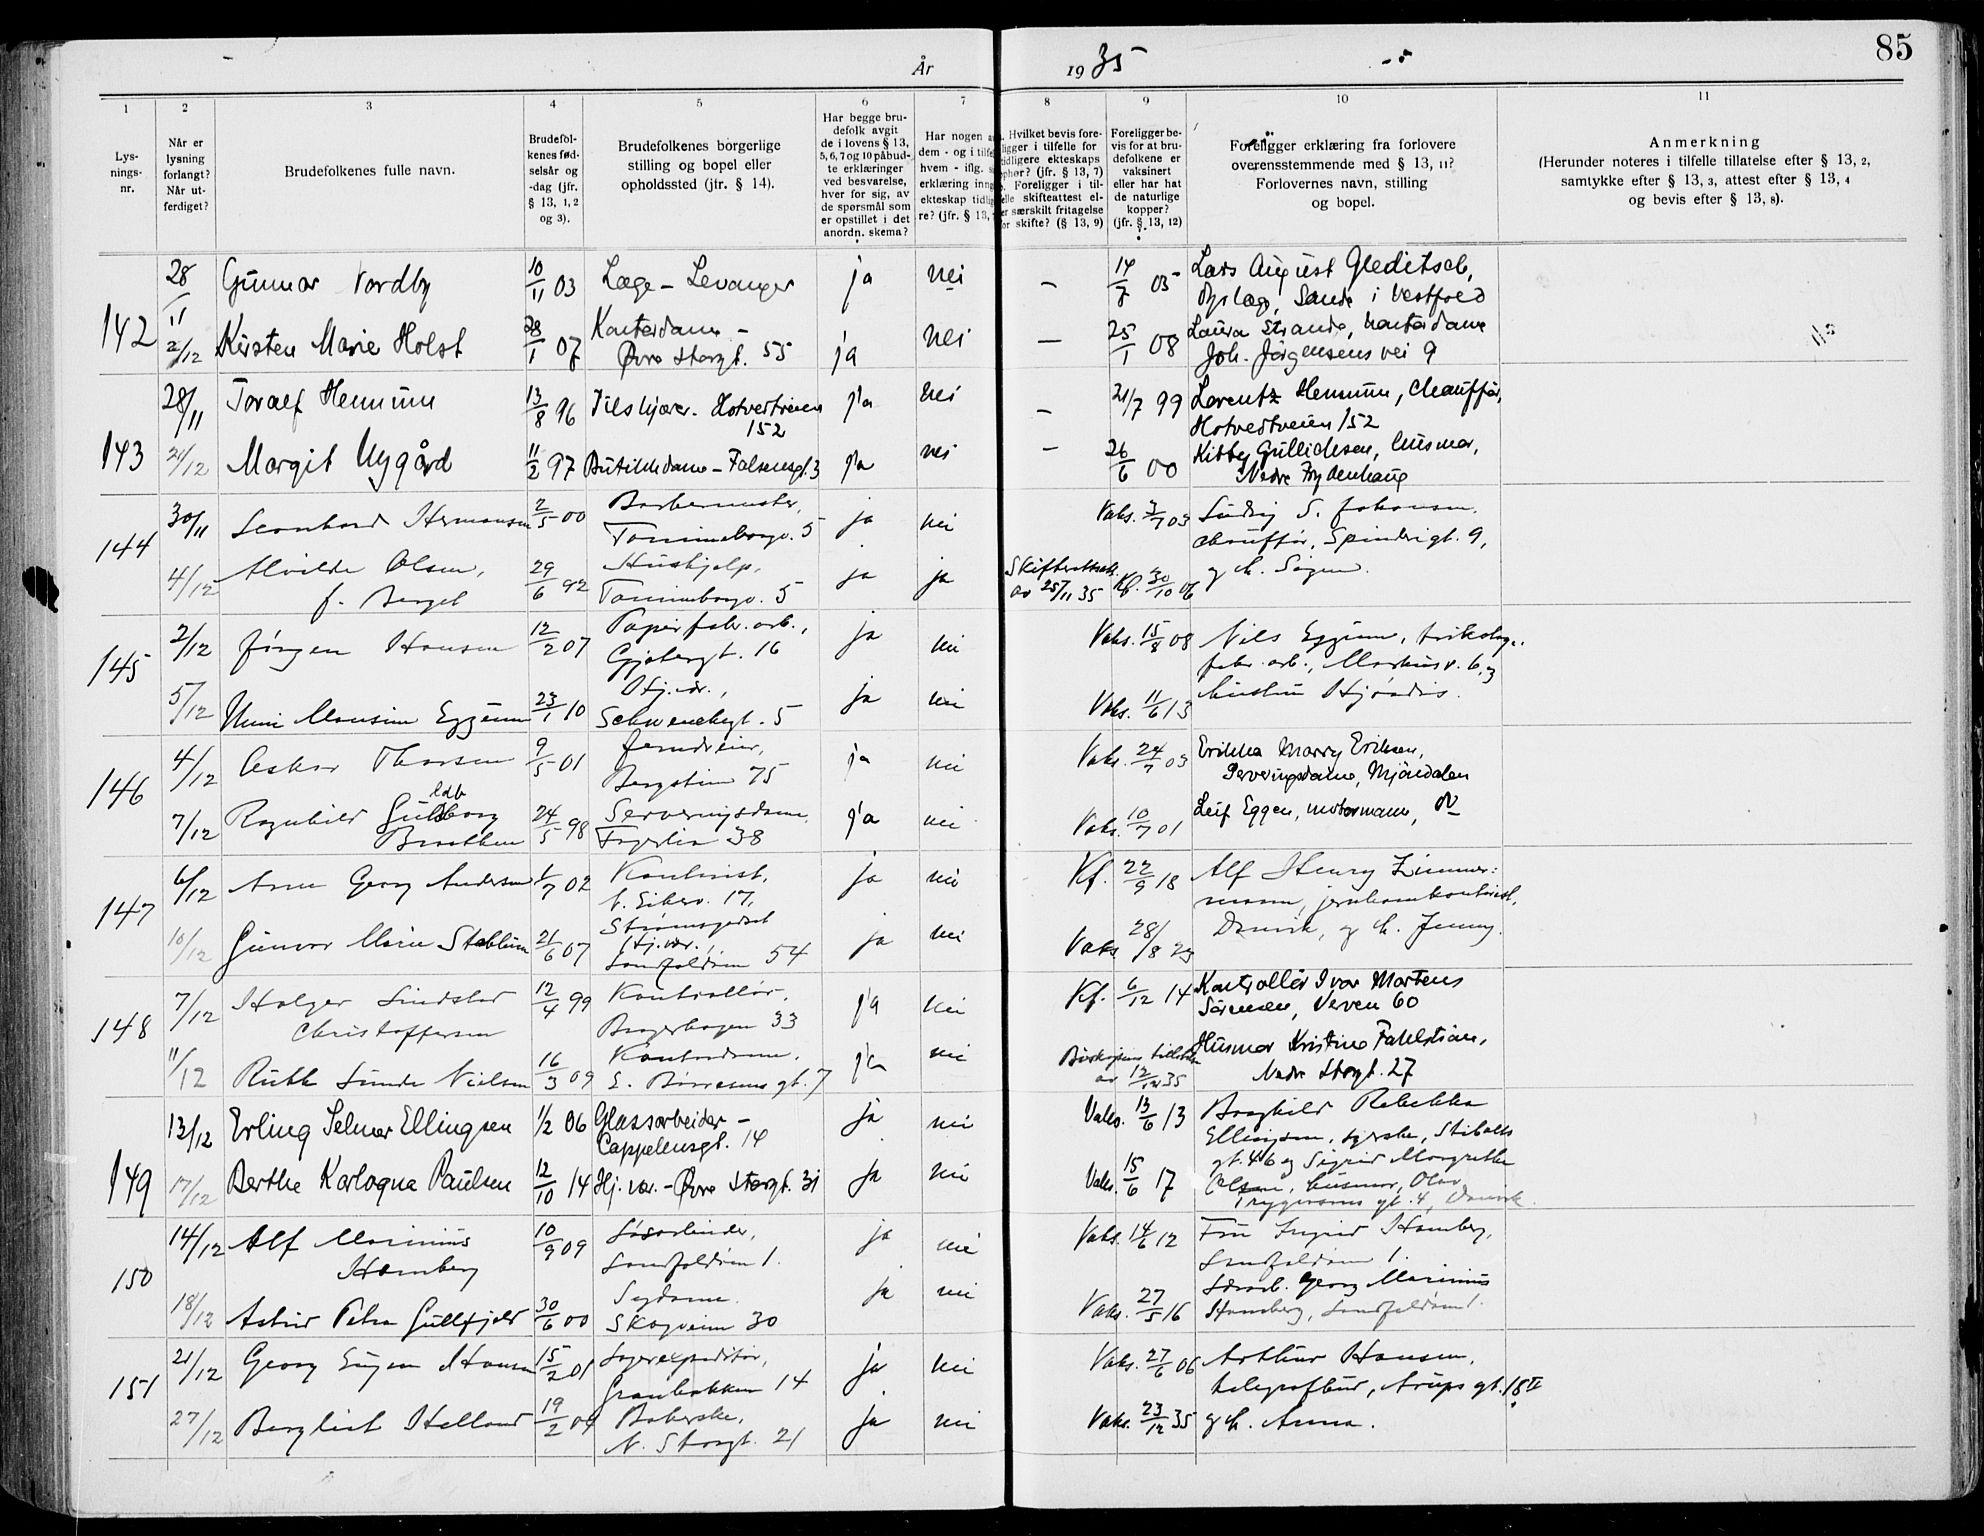 År 1935
85
1 2 3 4 5 6 7 8 9 10 11
Lys-
nings-
nr.
Når er
lysning
forlangt?
Når ut-
ferdiget?
Brudefolkenes fulle navn.
Brudefol-
kenes fød-
selsår og
-dag (jfr.
§ 13, 1, 2
og 3).
Brudefolkenes borgerlige
stilling og bopel eller
opholdssted (jfr. § 14).
Har begge bru-
defolk avgit
de i lovens § 13,
5, 6, 7 og 10 påbud-
te erklæringer
ved besvarelse,
hver for sig, av
de spørsmål som
er opstillet i det
anordn. skema?
Har nogen
dem - og i
hvem - iflg.
erklæring
ekteskap
re? (jfr. § 13,
Hvilket bevis fore-
ligger i tilfelle for
tidligere ekteskaps
ophør? (jfr. § 13, 7)
Foreligger i til-
felle skifteattest el-
ler særskilt fritagelse
for skifte? (§ 13, 9)
Foreligger be-
vis for at bru-
defolkene er
vaksinert
eller har hat
de naturlige
kopper?
(jfr. § 13, 12)
Foreligger erklæring fra forlovere
overensstemmende med § 13, 11?
Forlovernes navn, stilling
og bopel.
Anmerkning
(Herunder noteres i tilfelle tillatelse efter § 13, 2,
samtykke efter § 13, 3, attest efter § 13, 4
og bevis efter § 13, 8).
142
28/11 Gunnar Nordby 10/11 03 Læge - Levanger ja nei — 14/7 05 Lars August Gleditsch,
Dyrlæge, Sande i Vestfold
2/12 Kirsten Marie Holst 28/1 07 Kontordame -
Øvre Storgt. 55 ja nei — 25/1 08 Laura Strande, kontordame
Joh. Jörgensens vei 9
143
28/11 Toralf Hennum 13/8 96 Pilskjærer. Hotvedtveien
152 ja nei — 21/7 99 Lorentz Hennum, Chauffør,
Hotvedtveien 152
21/12 Margit Nygård 11/2 97 Butikkdame - Falsensgt. 3 ja nei — 26/6 00 Kitty Gullichsen, husmor,
Nedre Frydenhaug
144
30/11 Leonhard Hermansen 2/5 00 Barbermester,
Tommeborgv. 5 ja nei Vaks. 3/7 03 Ludvig S. Johansen
chauffør, Spinderigt. 9,
og h. Signe.
4/12 Alvilde Olsen,
f. Berget 29/6 92 Hushjelp,
Tommeborgv. 5 ja ja Skifteattest
av 25/11 35 Kf. 30/10 06
145
2/12 Jørgen Hansen 12/2 07 Papirfabr. arb.,
Gjetergt. 16 ja nei Vaks. 15/8 08 Nils Eggum, trikotage-
fabr. arb., Markusv. 6, og
hustru Hjørdis.
5/12 Eggum 23/1 10 Hj. vær.,
Schwenckegt. 5 ja nei Vaks. 11/6 13
146
4/12 Oskar Thorsen 9/5 01
Bergstien 75 ja nei Vaks. 24/7 03 Erikka Marry Eriksen,
Serveringsdame, Mjøndalen
7/12 Ragnhild Guldborg
Braathen 24/5 98 Serveringsdame,
Fagerlia 38 ja nei Vaks. 10/7 01 Leif Eggen, motormann,
147
6/12 Arne Georg Andersen 1/7 02 Kontorist,
17,
Strømsgodset ja nei Kf. 22/9 18 Alf Henry Zimmer-
mann, jernbanekontorist,
Danvik, og h. Jenny.
10/12 Gunvor Marie Stablum 21/6 07 Hj. vær.,
Landfaldøen 54 ja nei Vaks 28/8 23
148
7/12 Holger Lindstad
Christoffersen 12/4 99 Kontrollør,
Bragerhagen 33 ja nei Kf. 6/12 14 Kontrollør Ivar Martens
Sörensen, Verven 60
11/12 Ruth Sunde Nielsen 16/3 09 Kontordame,
E. Børresens gt. 7 ja nei Biskopens tillatelse
av 12/12 35 Husmor Kristine Fahlstrøm,
Nedre Storgt. 27
149
13/12 Erling Selmer Ellingsen 1/2 06 Glassarbeider -
Cappelensgt. 14 ja nei Vaks. 13/6 13 Borghild Rebekka
Ellingsen, syerske, Stibolts
gt. 46 og Sigrid Margrethe
Olsen, husmor, Olav
Trygvasons gt. 4, Danvik
17/12 Berthe Karlogna Paulsen 12/10 14 Hj. vær. - Øvre Storgt. 31 ja nei Vaks. 15/6 17
150
14/12 Alf Marinius
Hamberg 10/9 09 Løsarbeider,
Landfaldøen 1. ja nei Vaks. 14/6 12 Fru Ingrid Hamberg,
Landfaldøen 1.
Georg Marinius
Hamberg, Landfaldøen 1.
18/12 Astrid Petra Gullfjeld 30/6 00 Sydame.
Skogveien 30 ja nei Vaks. 27/5 16
151
21/12 Georg Eugen Hansen 15/2 01 Lagerexpeditør,
Granbakken 14 ja nei Vaks. 27/6 06 Arthur Hansen,
telegrafbud, Arups gt. 18 II
27/12 Bergliot Helland 19/2 04 Bokerske,
N. Storgt. 21 ja nei Vaks. 23/12 35 og h. Anna.